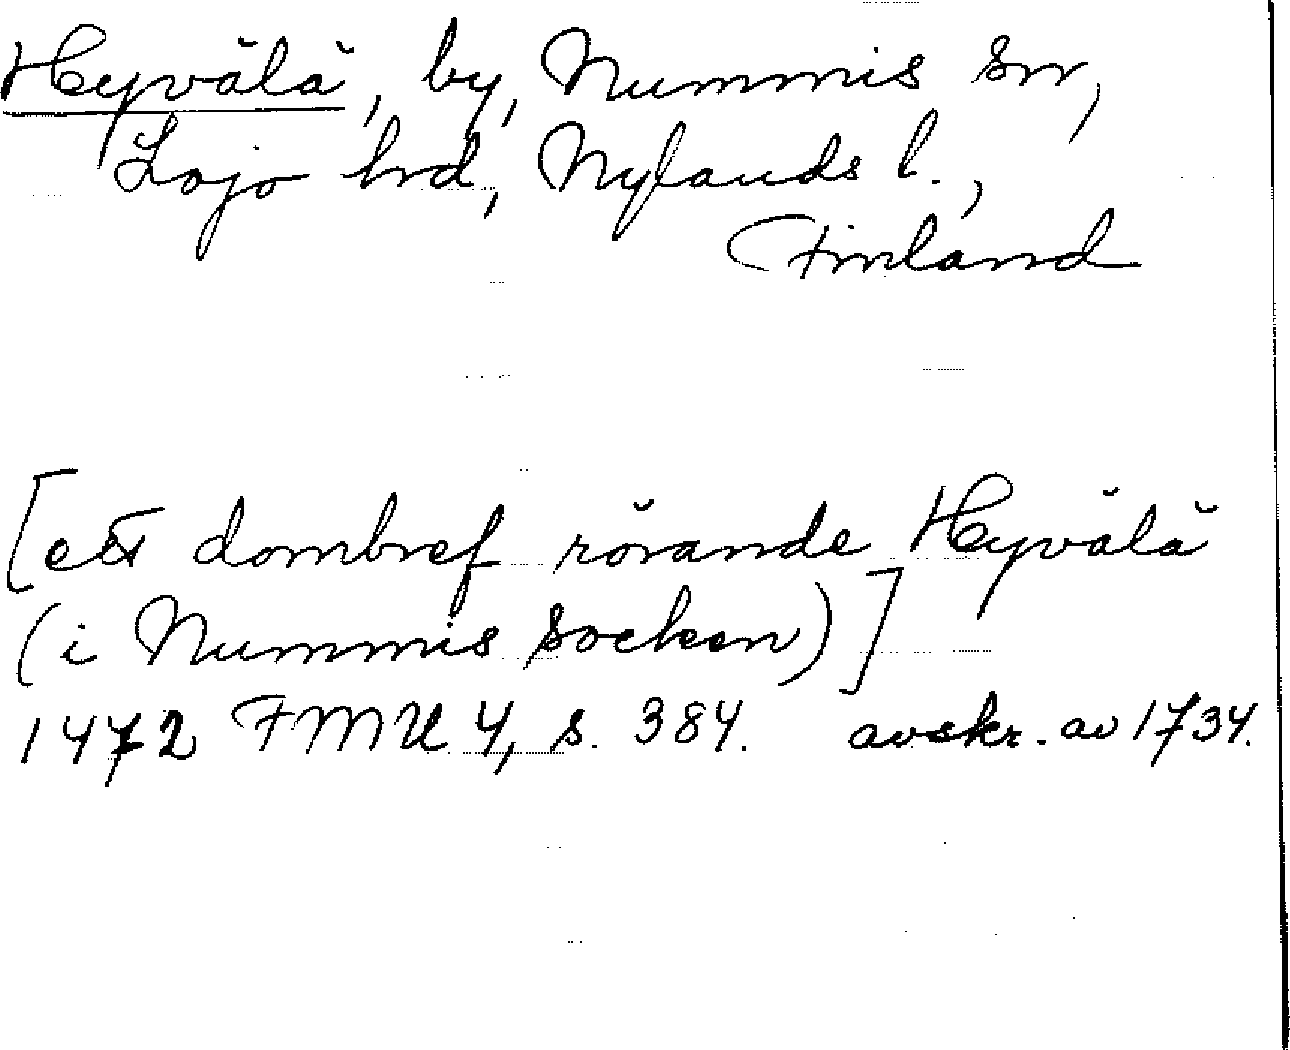 Hyvälä, by, Nummis sn,
Lojo hrd, Nylands l.,
Finland
[ett dombref rörande Hyvälä
(i Nummis socken)]
1472 FMU 4, s. 384. avskr. av 1734.